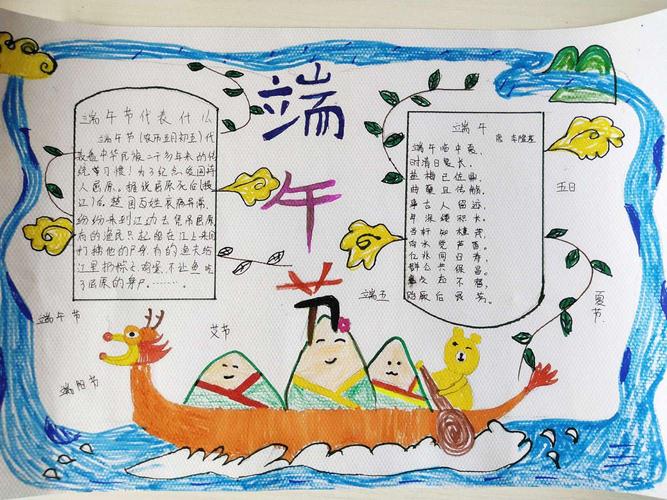 端午节
端午节代表什么
端午节(农历五月初五)代
表着中华民族二千多年来的传
统习惯!为了纪念爱国诗
人屈原。据说屈原死后(投
江)后,楚国百姓哀痛异常,
纷纷来到江边去凭吊屈原
有的渔民只起船在江上来回
打捞他的尸身,有的鱼夫给
江里扔粽子、鸡蛋,不让鱼吃
了屈原的身尸.......
端午
唐 李隆基
端午临中夏,
时清日复长。
盐梅已佐鼎,
曲 且传觞。
事古人留迹,
年深缕积长。
当轩知槿茂,
向水觉芦香。
亿兆同归寿,
群公共保昌。
忠贞如不替,
贻厥后昆芳。
五日
端五
夏节
端午节
艾节
端阳节